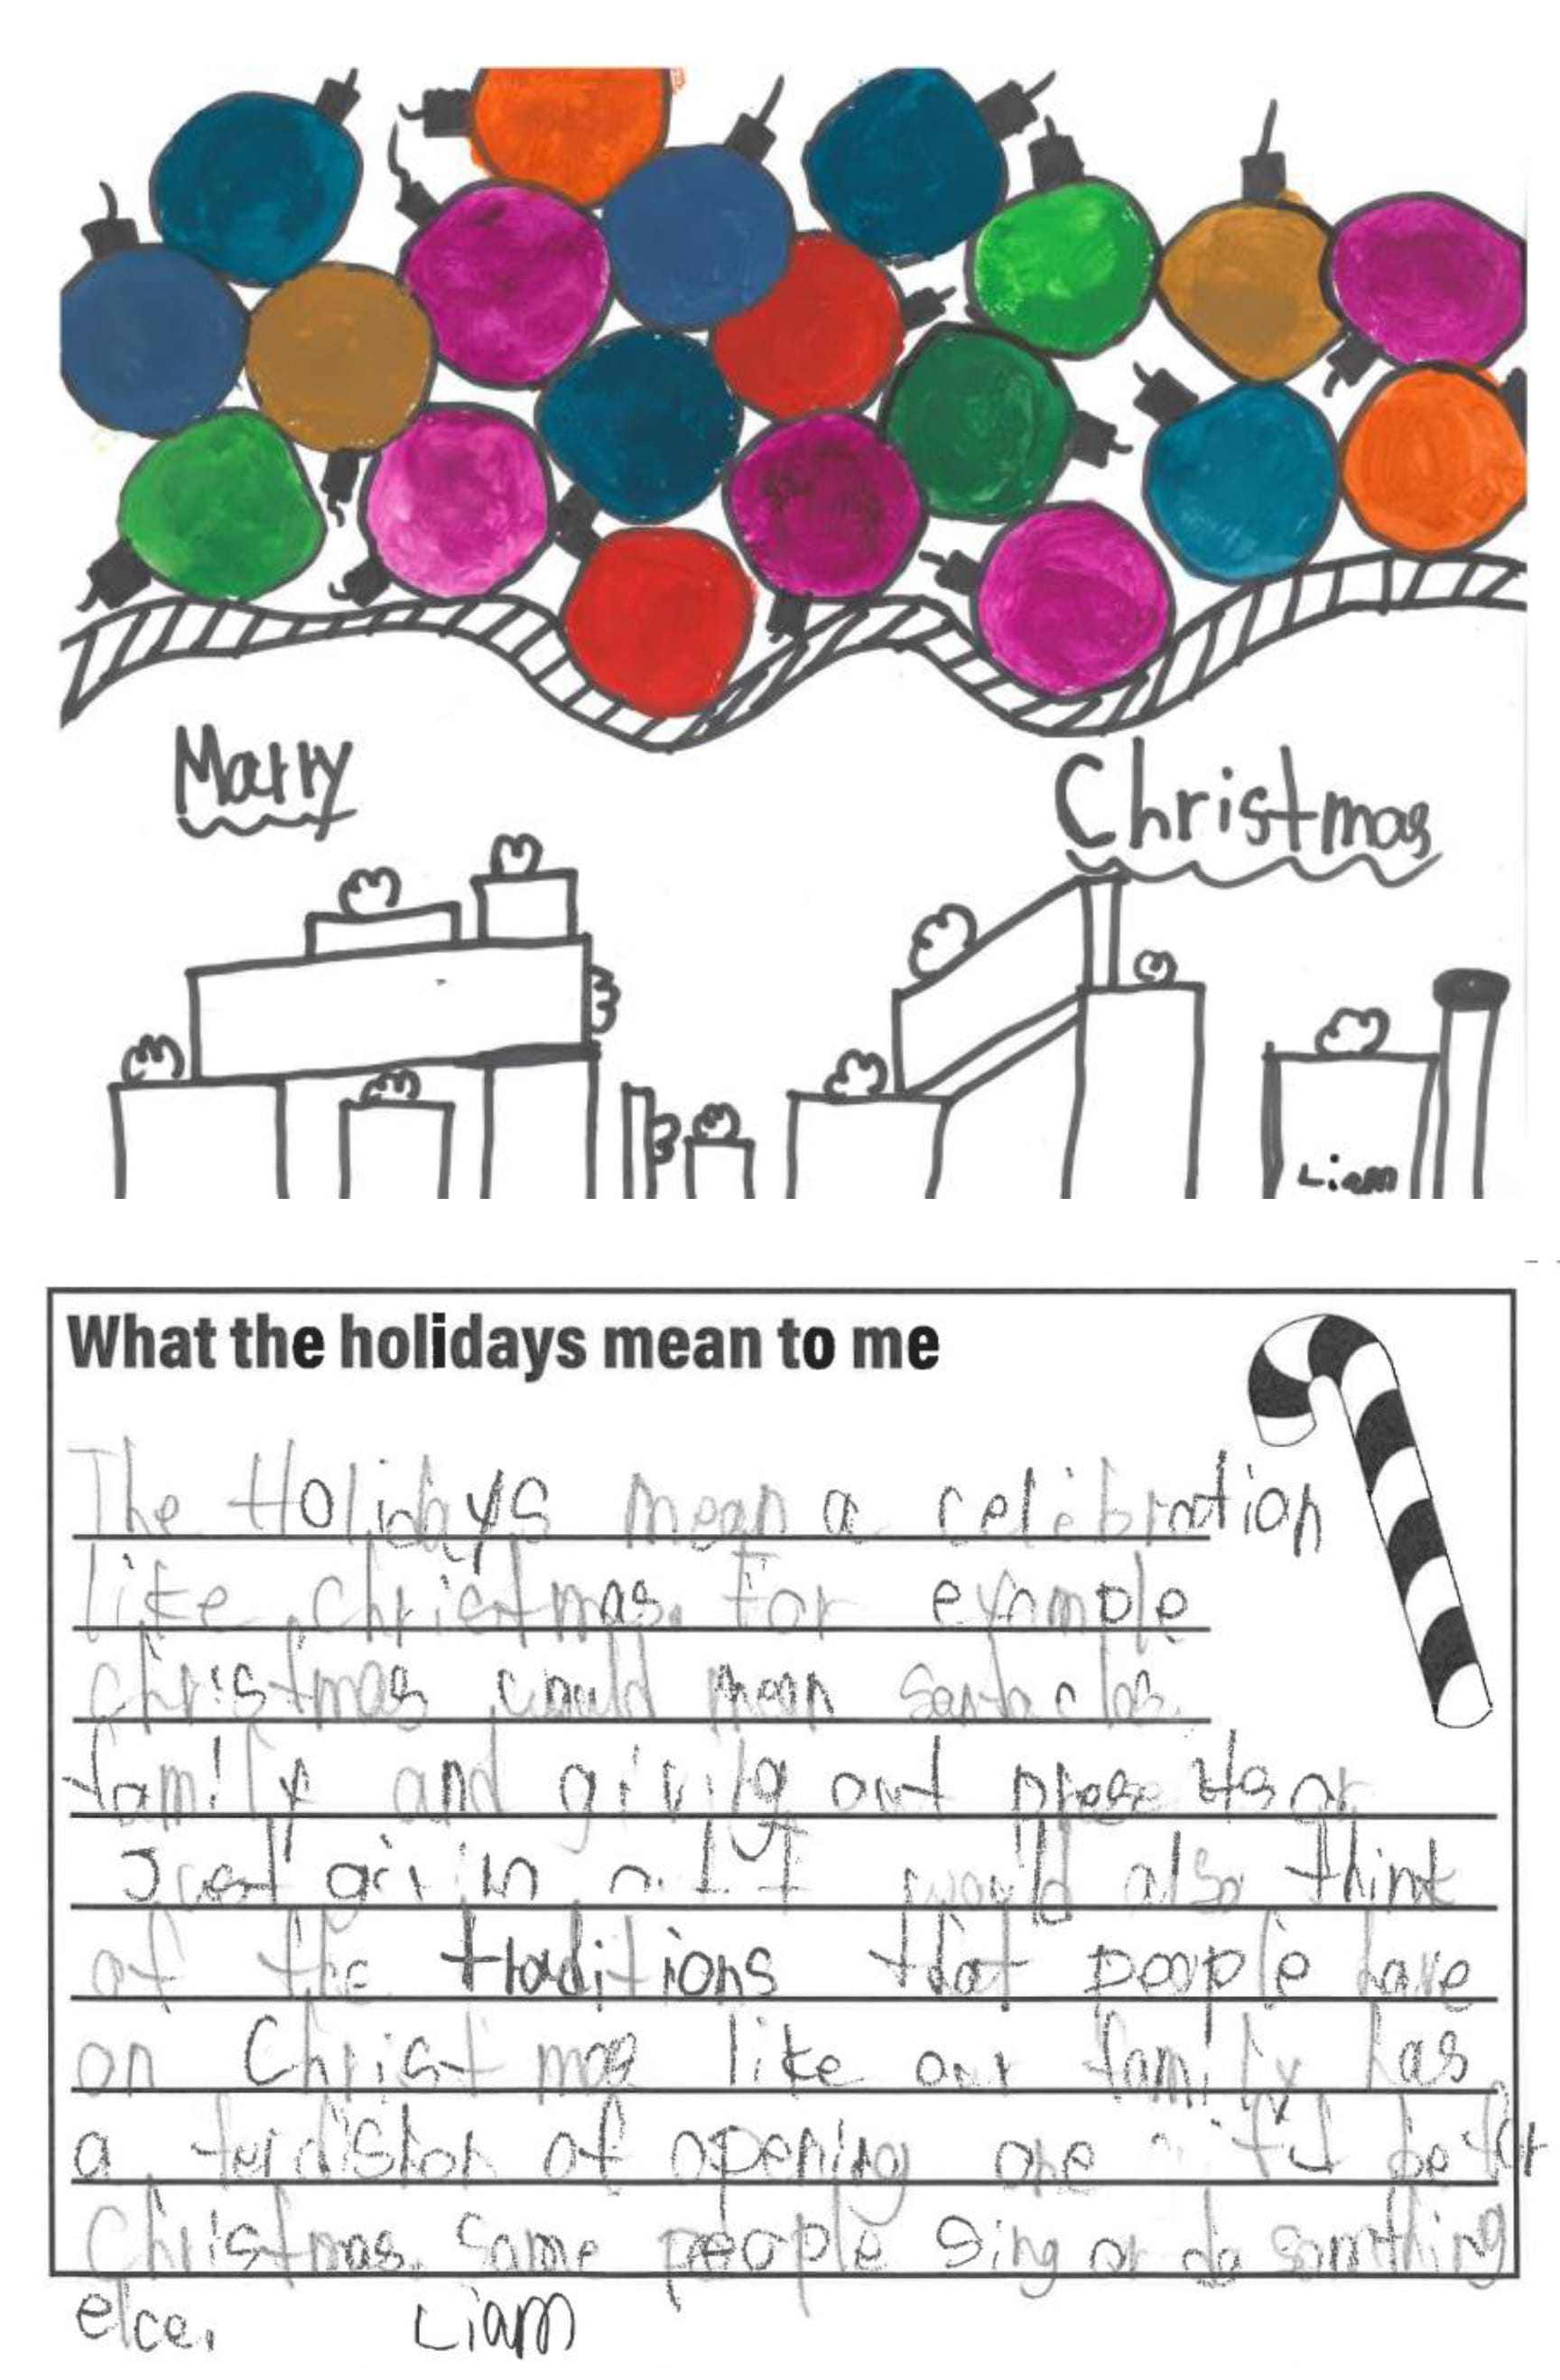 Marry
Christmas
Liam
What the holidays mean to me
The Holidays mean a celebration
like christmas. For example
christmas could mean santa clas
family and giving out presents or
Just giving I would also think
of the traditions that people have
on Christmas like our family has
a of opening one
Christmas. Some people sing or do somthing
elce.
Liam